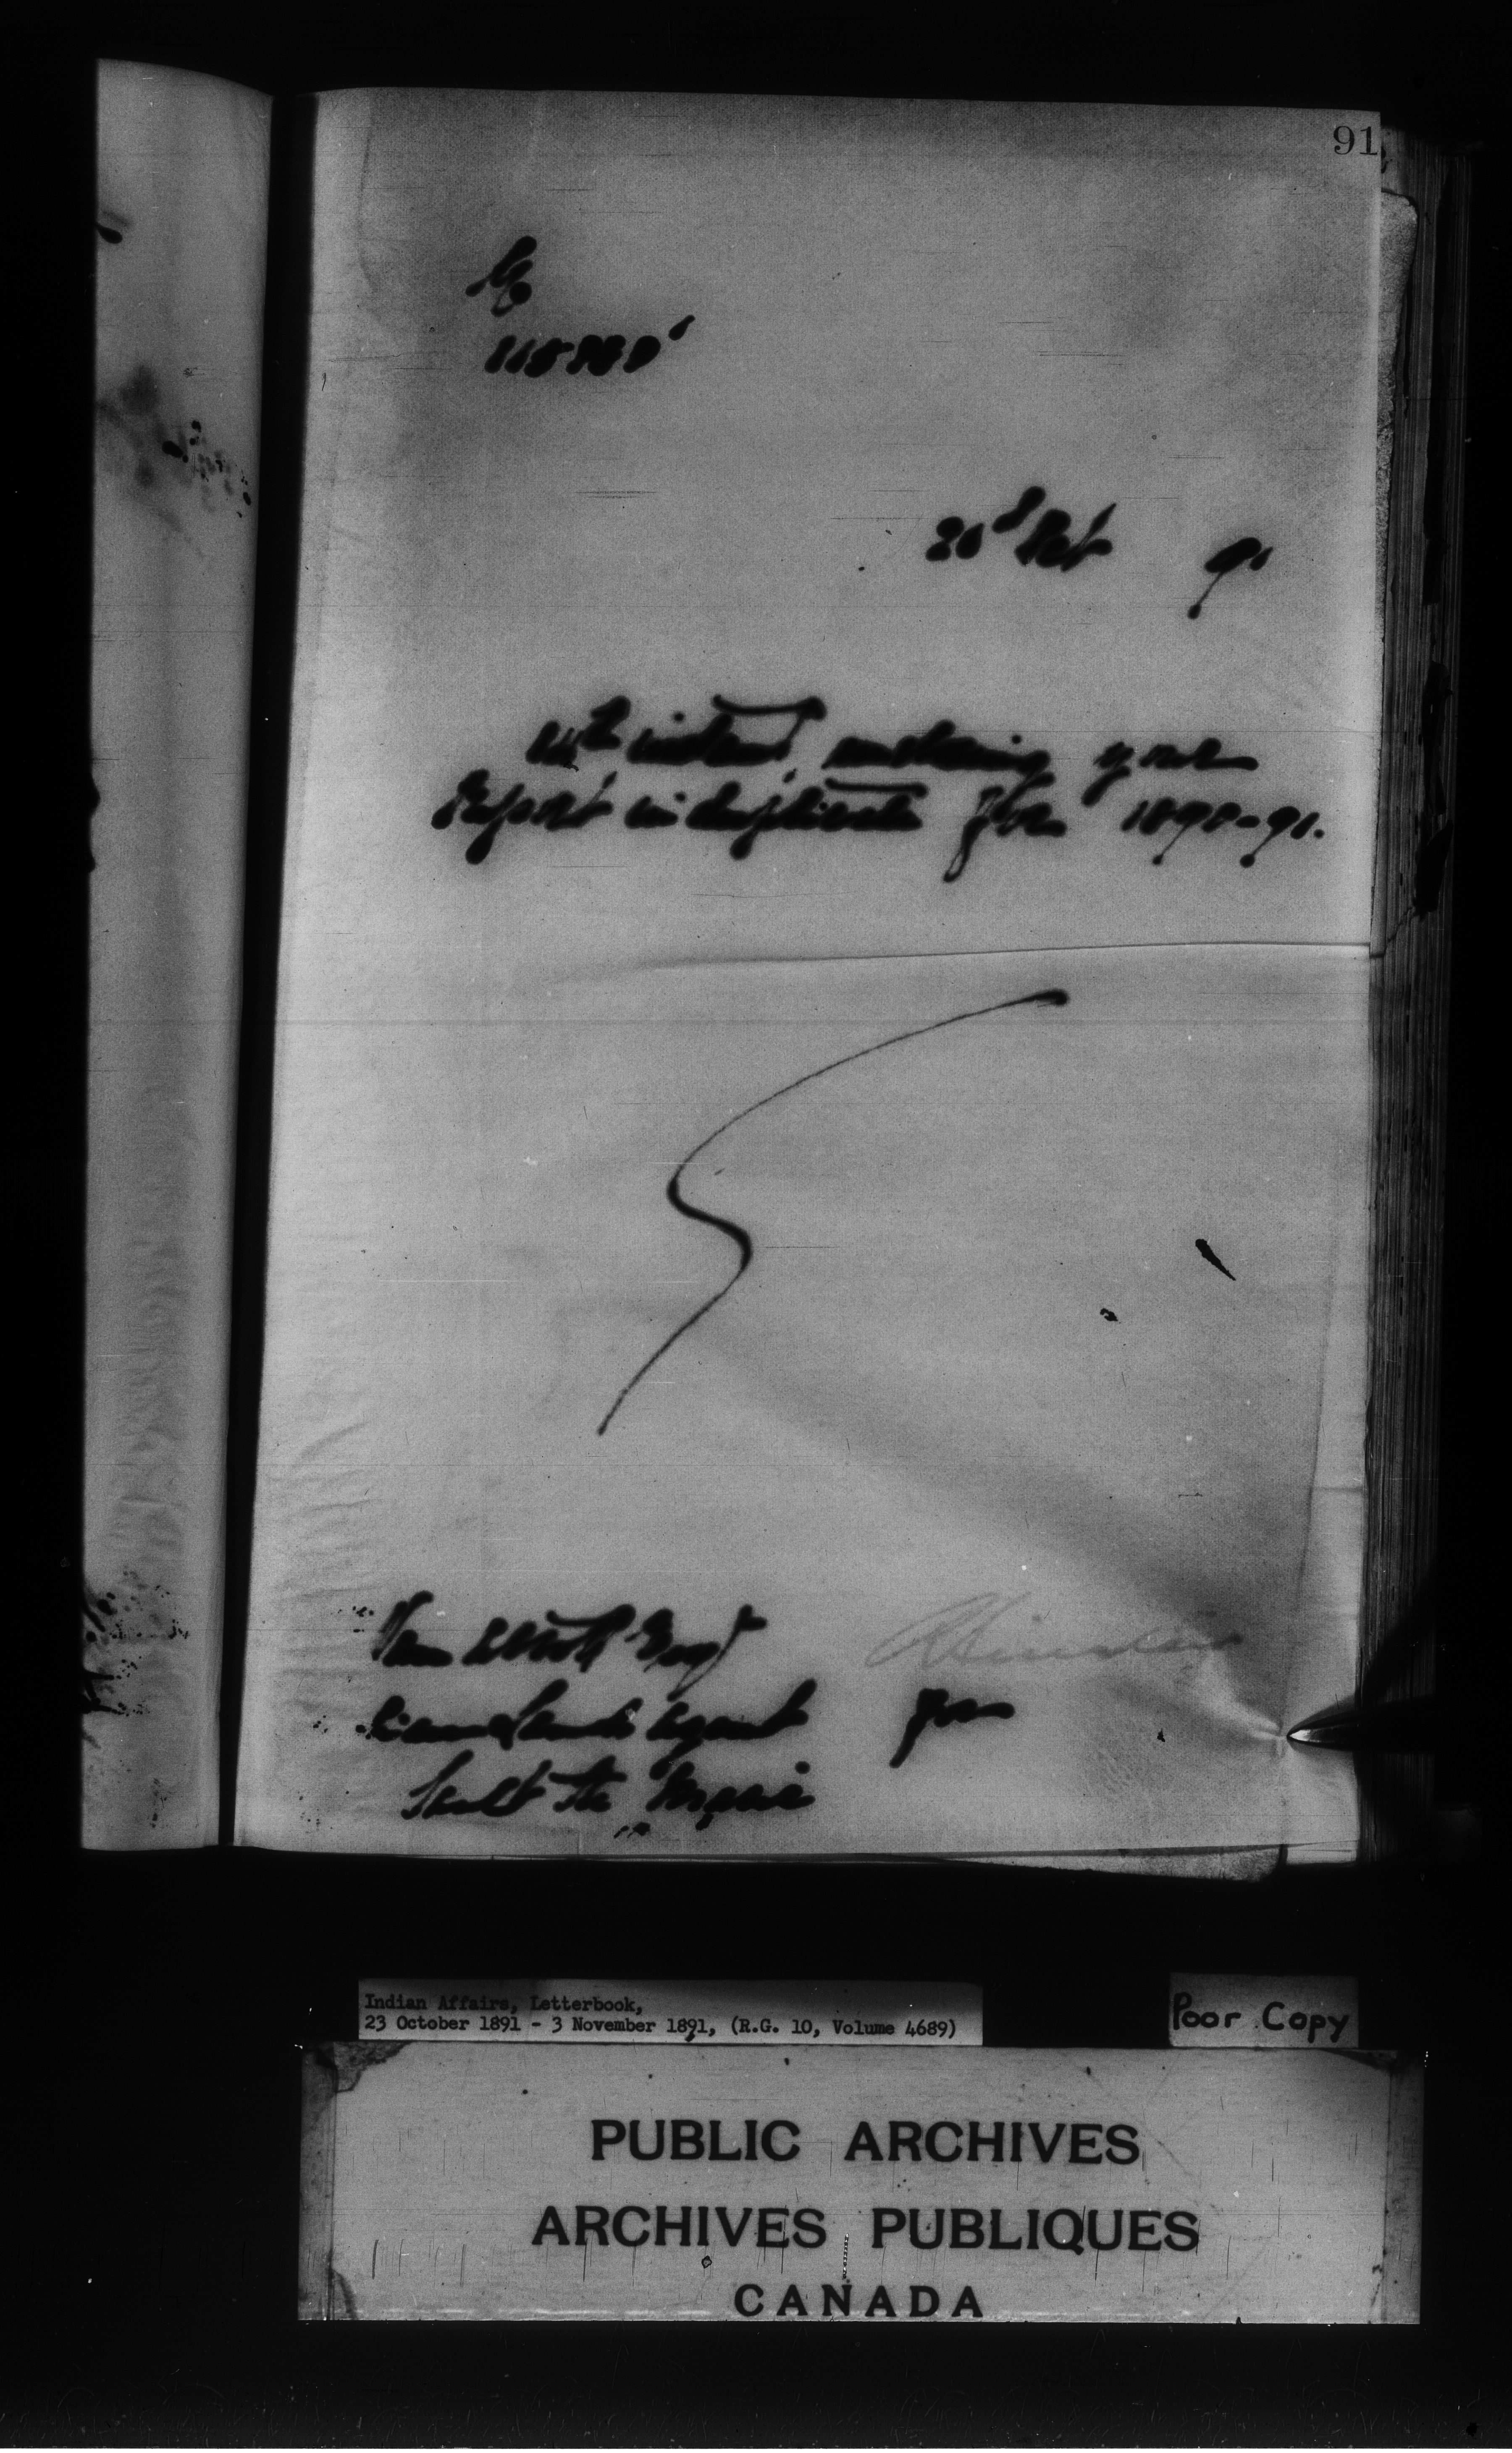 91
Oct 91
instant, enclosing your
Report in duplicate for 1890-91.
Wm Esqr
Indian Lands Agent for
Sault Ste Marie
Indian Affairs, Letterbook,
23 October 1891 - 3 November 1891, (R.G. 10, Volume 4689)
Poor Copy
PUBLIC ARCHIVES
ARCHIVES PUBLIQUES
CANADA